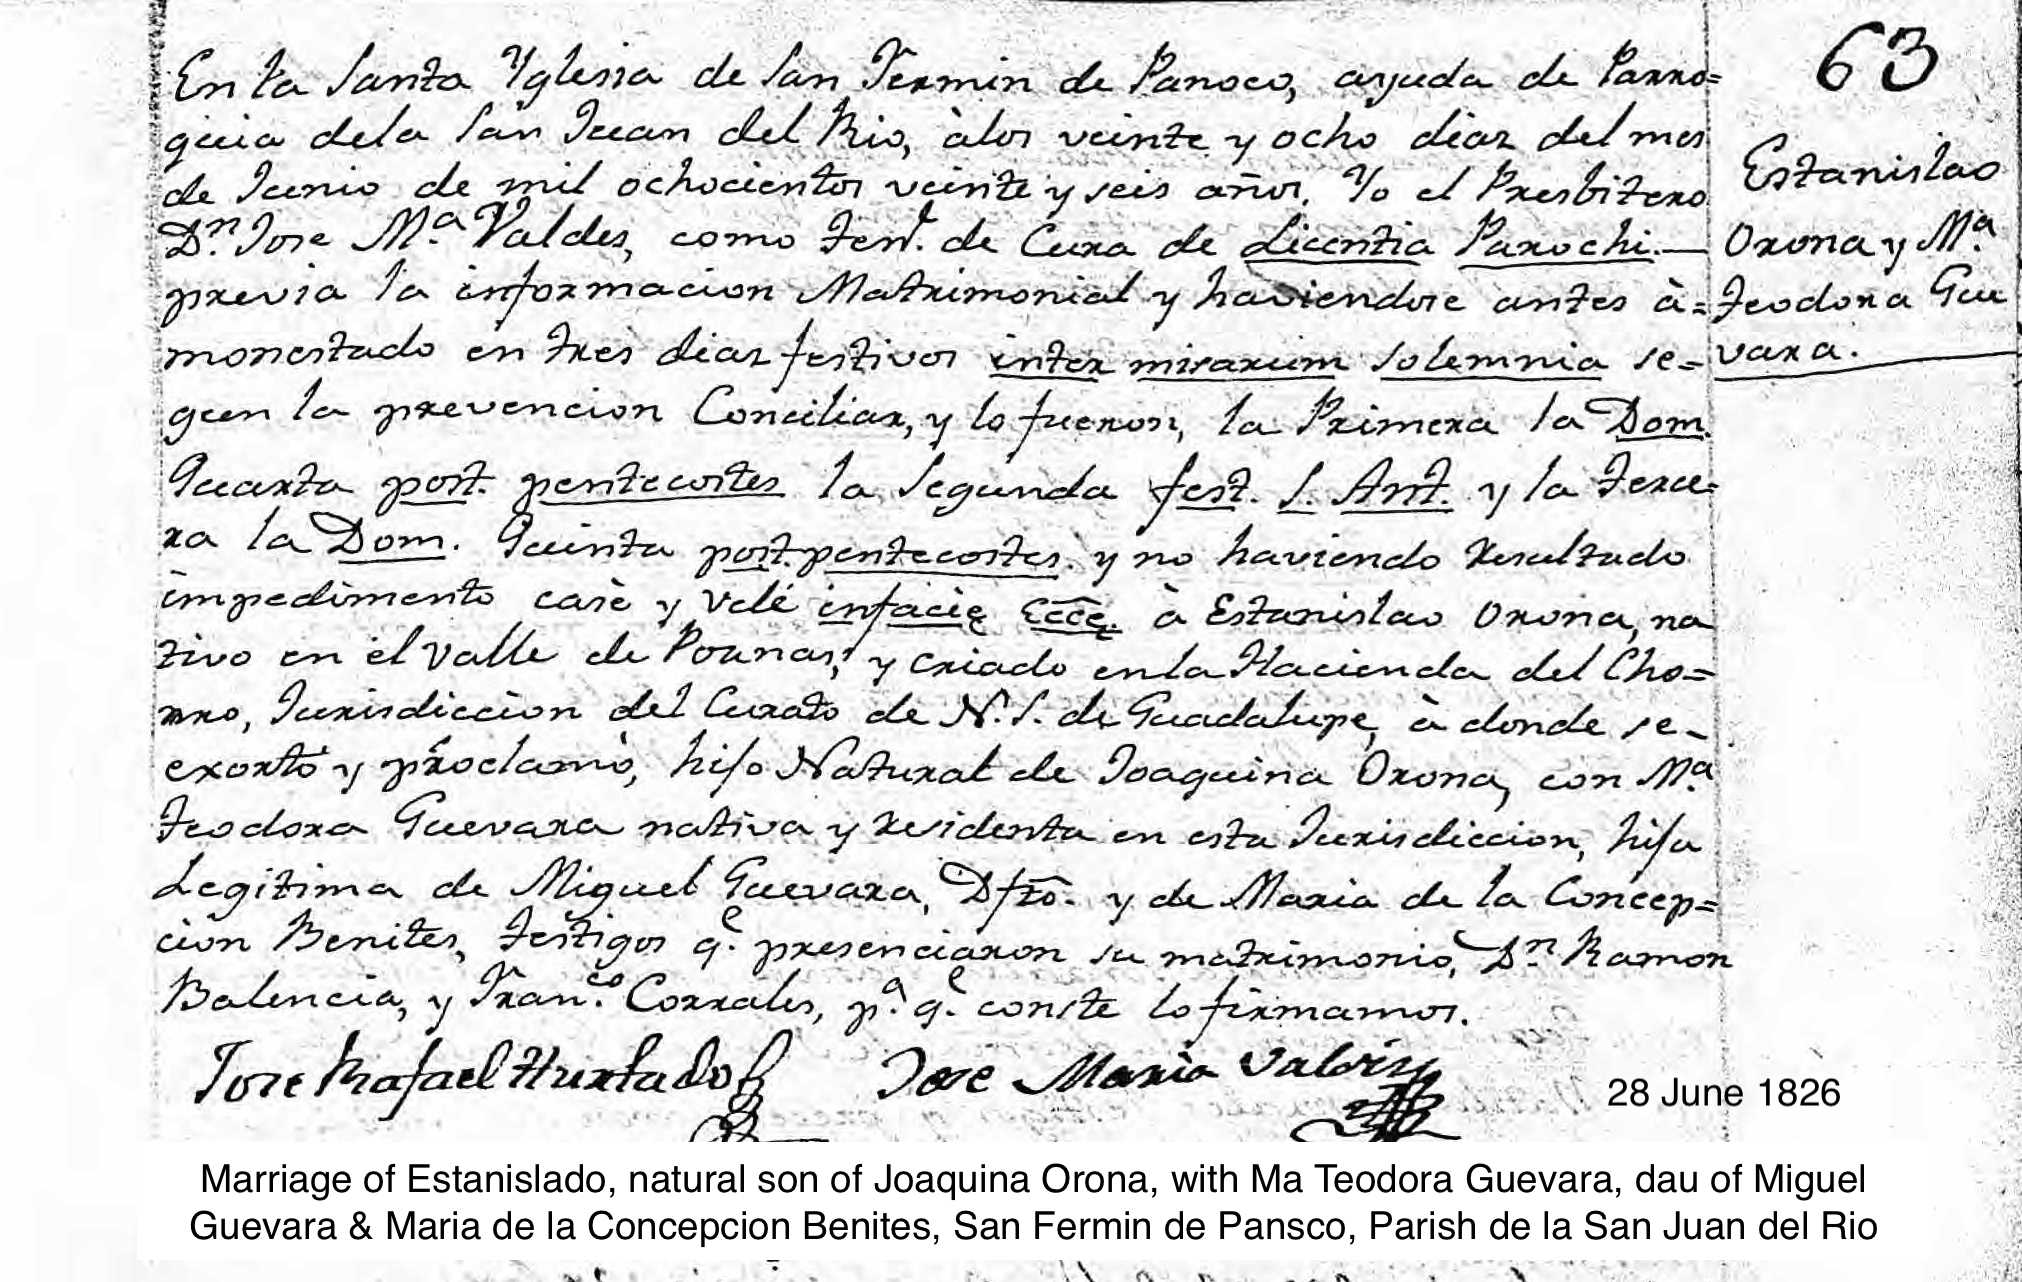 En la Santa Yglesia de San Fermin de Panoco, ayuda de Parro=
quia dela San Juan del Rio, àlos veinte y ocho dias del mes
de Junio de mil ochocientos veinte y seis años. Yo el Presbitero
Dn. Jose Ma. Valdes, como Tente. de Cura de Licentia Parochi.—
previa la informacion Matrimonial y haviendose antes à=
monestado en tres dias festivos inter misarum solemnia se=
gun la prevencion Conciliar, y lo fueron, la Primera la Dom.
Quarta post. pentecostes la Segunda fest. S. Ant. y la terce=
ra la Dom. Quinta post. pentecostes. y no haviendo resultado
impedimento casè y velé infacie Ecce. à Estanislao Orona, na
tivo en el Valle de Poanas, y criado enla Hacienda del Cho=
rro, Jurisdiccion del Curato de N. S. de Guadalupe, à donde se-
exortò y proclamò, hijo Natural de Joaquina Orona, con Ma.
Teodora Guevara nativa y residenta en esta Jurisdiccion, hija
Legitima de Miguel Guevara, Dfto. y de Maria de la Concep=
cion Benites, testigos qe. presenciaron su matrimonio, Dn. Ramon
Balencia, y Franco. Corrales, pa. qe. conste lo firmamos.
Jose Rafael Hurtado
Jose Maria Valdes
63
Estanislao
Orona y Ma.
Teodora Gue
vara.
28 June 1826
Marriage of Estanislado, natural son of Joaquina Orona, with Ma Teodora Guevara, dau of Miguel
Guevara & Maria de la Concepcion Benites, San Fermin de Pansco, Parish de la San Juan del Rio